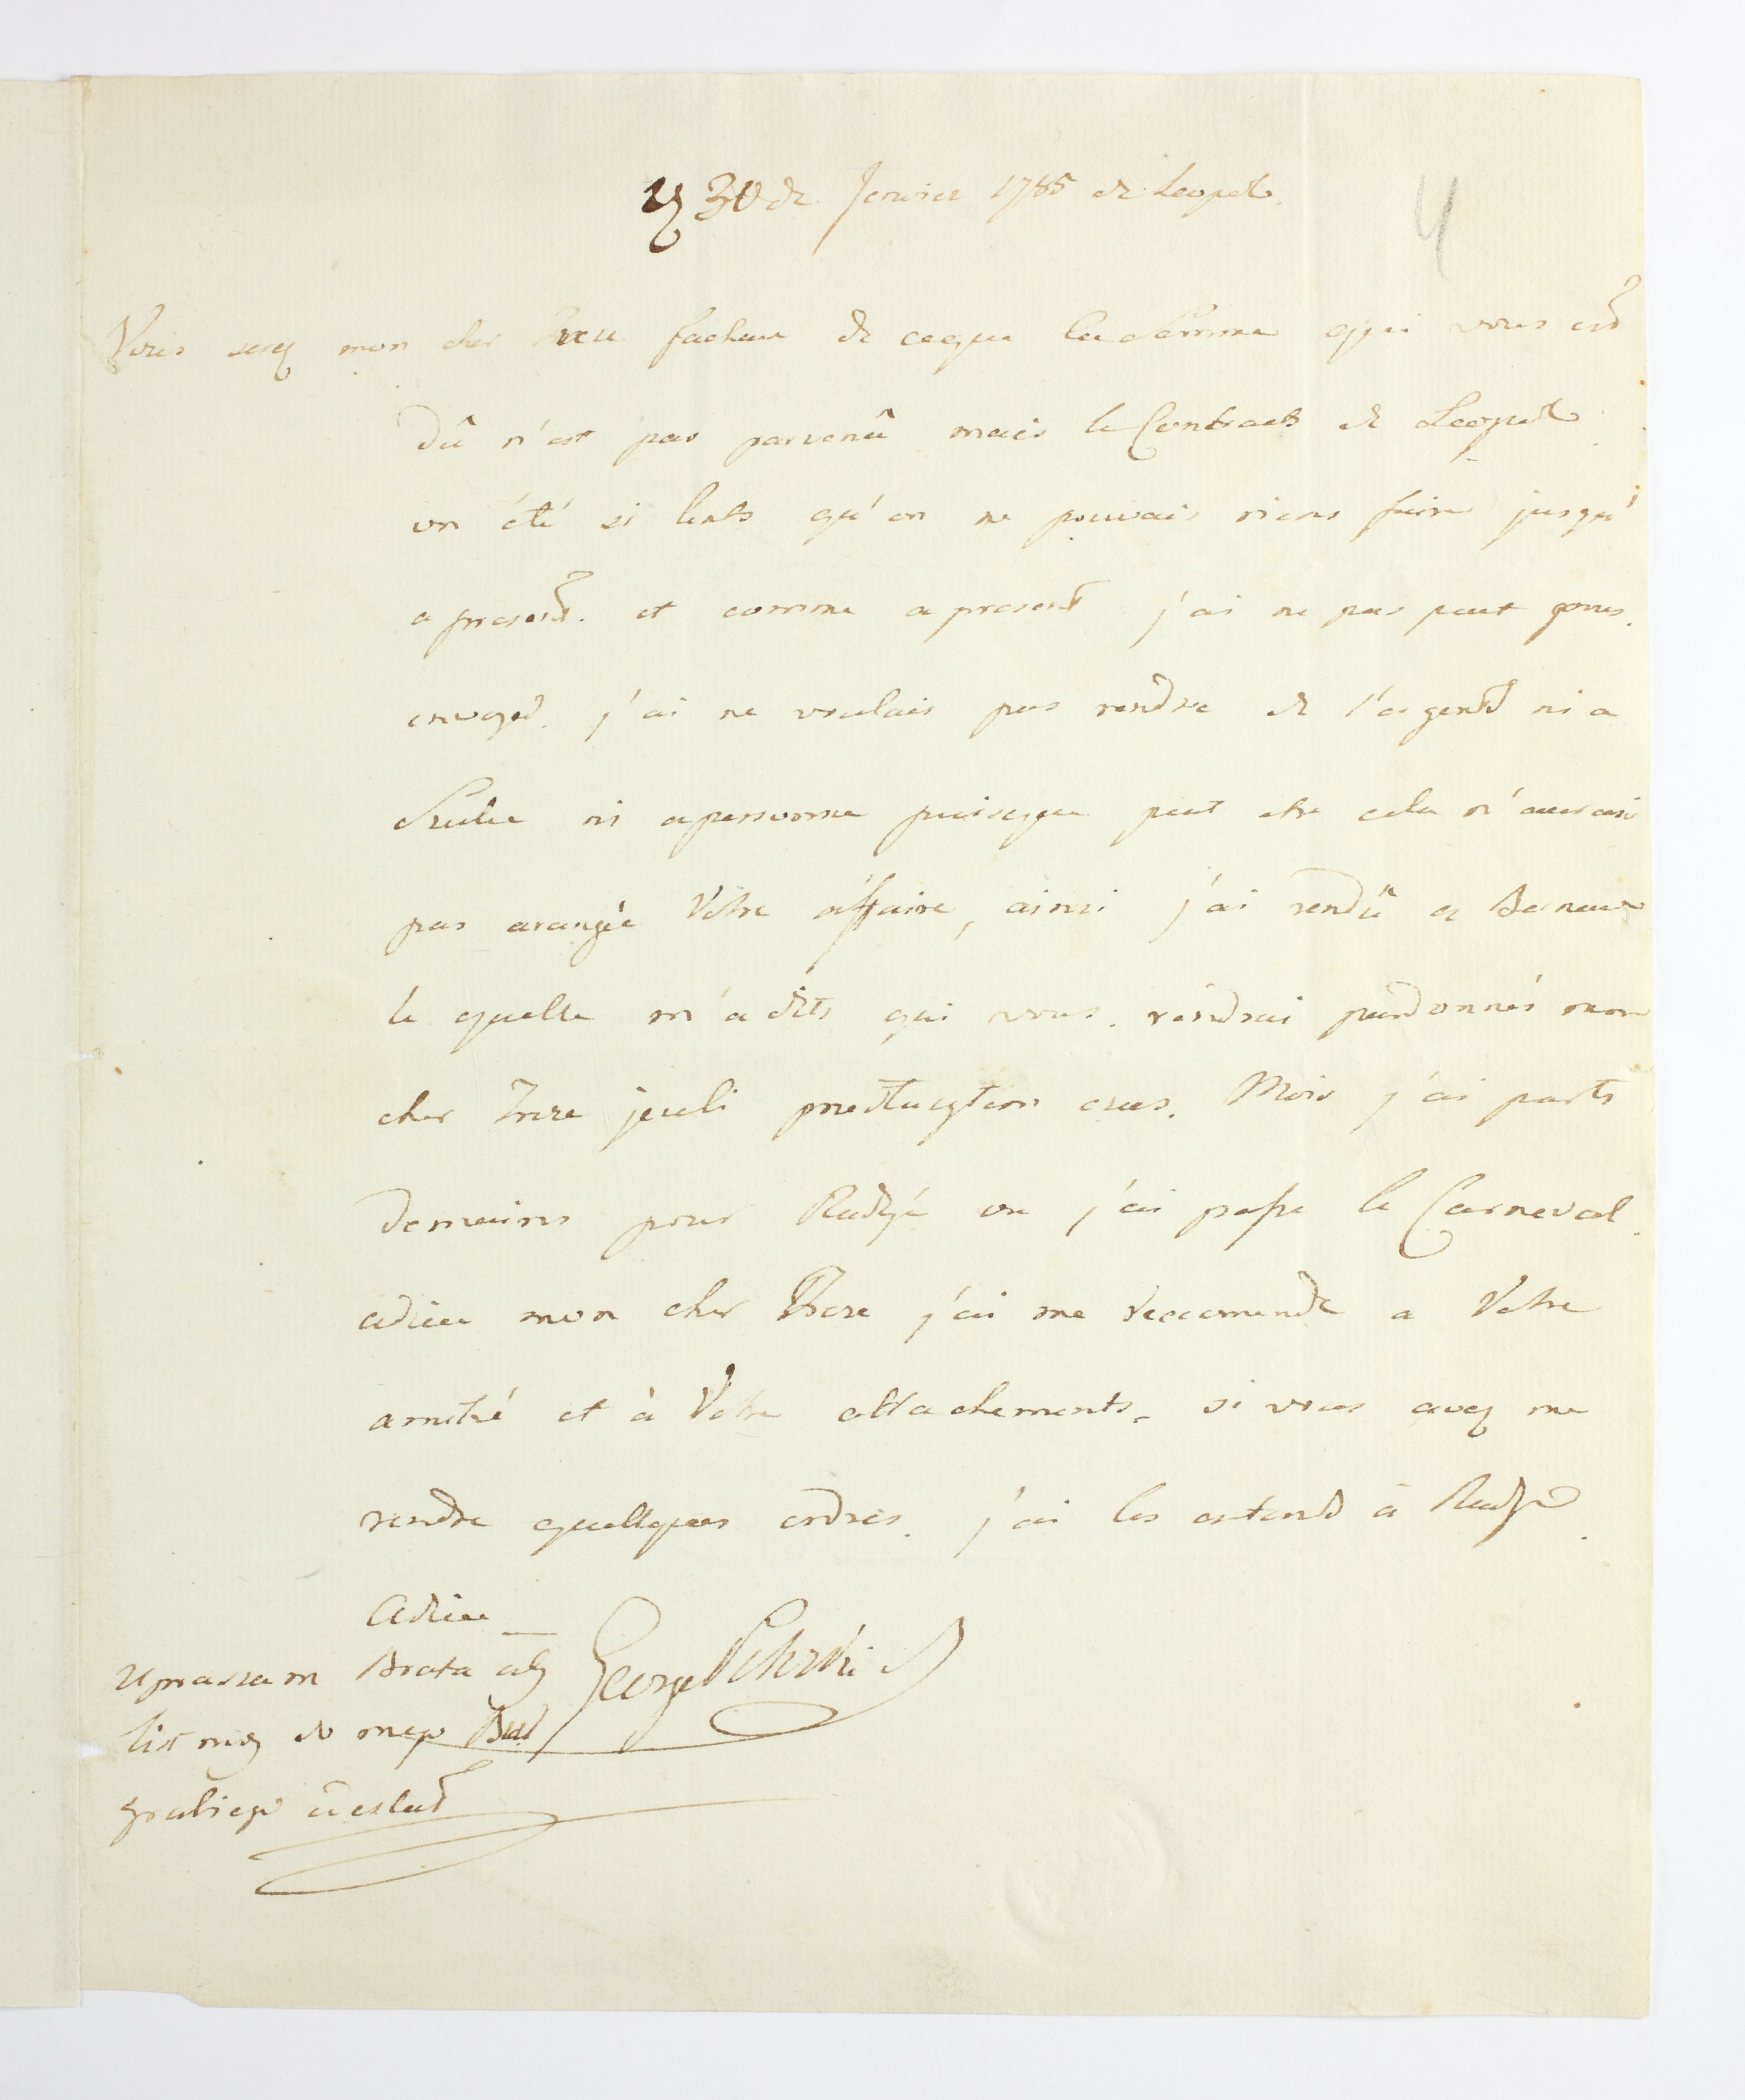 30 de Janvier 1785 de Leopol.
4
Vous serez mon cher Frere facheux de ceque la somme qui vous est
dû n'est pas parvenû mais le Contracts de Leopol
on été si lents qu'on ne pouvais riens faire jusqu'
a present. et comme a present j'ai ne pas peut
envoyed. j'ai ne voulais pas rendre de l'argentd ni a
ni apersonne puisque peut etre cela n'aurai
pas arangée Votre affaire, ainsi j'ai rendû a
le quelle m'a dits qui vous rendrai pardonnés mon
cher Frere Mois j'ai parts
demains pour ou j'ai passe le Carneval.
adieu mon cher Frere j'ai me reccomende a Votre
amitié et à Votre attachements. si vous avez me
rendre quellques ordres. j'ai les entend à
Adieu
upraszam Brata aby George
list moy do mego